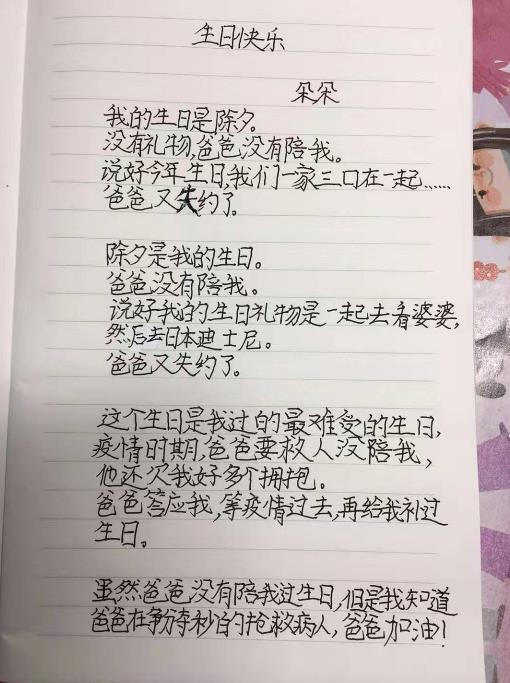 生日快乐
朵朵
我的生日是除夕。
没有礼物,爸爸没有陪我。
说好今年生日,我们一家三口在一起……
爸爸又失约了。
除夕是我的生日。
爸爸没有陪我。
说好我的生日礼物是一起去看婆婆,
然后去日本迪士尼。
爸爸又失约了。
这个生日是我过的最难受的生日,
疫情时期,爸爸要救人没陪我,
他还欠我好多个拥抱。
爸爸答应我,等疫情过去,再给我补过
生日。
虽然爸爸没有陪我过生日,但是我知道
爸爸在争分夺秒的抢救病人,爸爸加油!